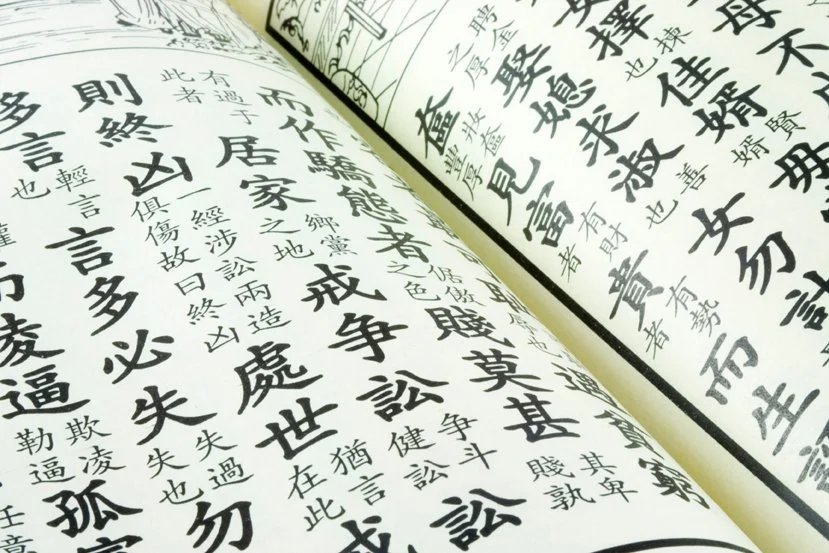 母不
女擇揀也佳婿賢婿毋
聘金之厚娶媳求淑善也女勿計
奩妝奩豐厚見富有財者貴有勢者而生諂
遇貧窮
而作驕態者倨傲之色賤莫甚其卑賤孰
有過于此者居家鄉黨之地戒争訟争斗健訟訟
則終凶一經涉訟兩造俱傷故曰終凶處世猶言在此戒
多言輕言也言多必失失過失也勿
而凌逼欺凌勒逼孤
任意